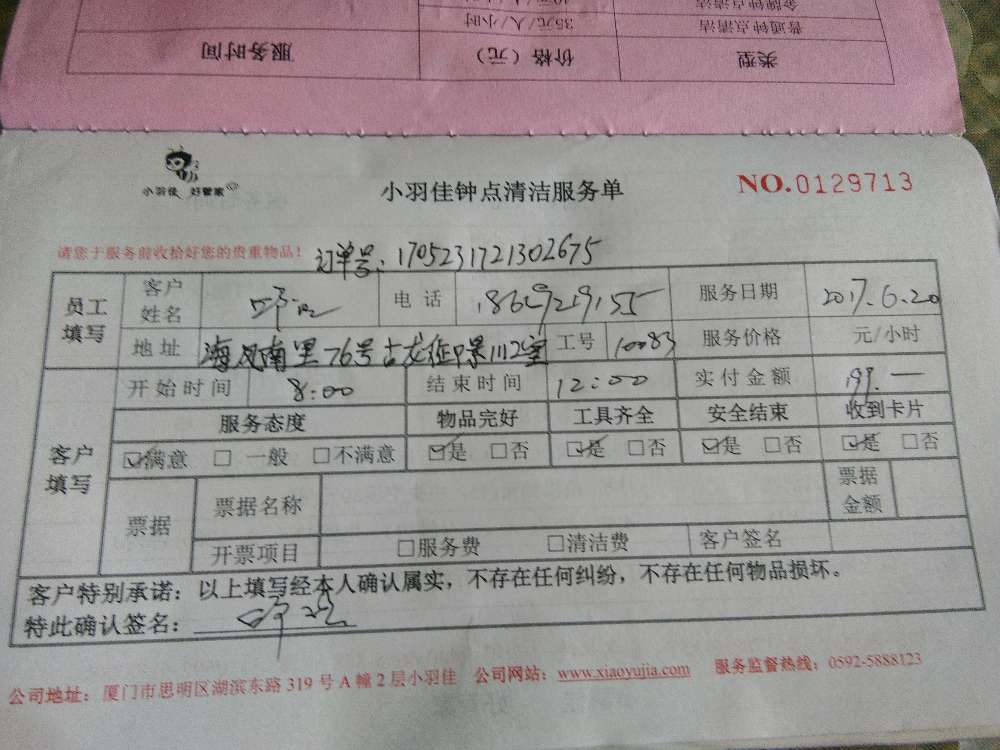 类型 价格（元） 服务时间
普通钟点清洁 35元/人/小时
金牌钟点清洁
小羽佳 好管家
小羽佳钟点清洁服务单
NO.0129713
请您于服务前收拾好您的贵重物品！ 订单号：1705231721302675
员工填写 客户姓名 电话 服务日期 2017.6.20
地址 海凤南里76号 室 工号 10083 服务价格 元/小时
客户填写 开始时间 8:00 结束时间 12:00 实付金额 199.一
服务态度 物品完好 工具齐全 安全结束 收到卡片
☑满意 □一般 □不满意 ☑是 □否 ☑是 □否 ☑是 □否 ☑是 □否
票据 票据名称 票据金额
开票项目 □服务费 □清洁费 客户签名
客户特别承诺：以上填写经本人确认属实，不存在任何纠纷，不存在任何物品损坏。
特此确认签名：
公司地址：厦门市思明区湖滨东路319号A幢2层小羽佳 公司网站：www.xiaoyujia.com 服务监督热线：0592-5888123